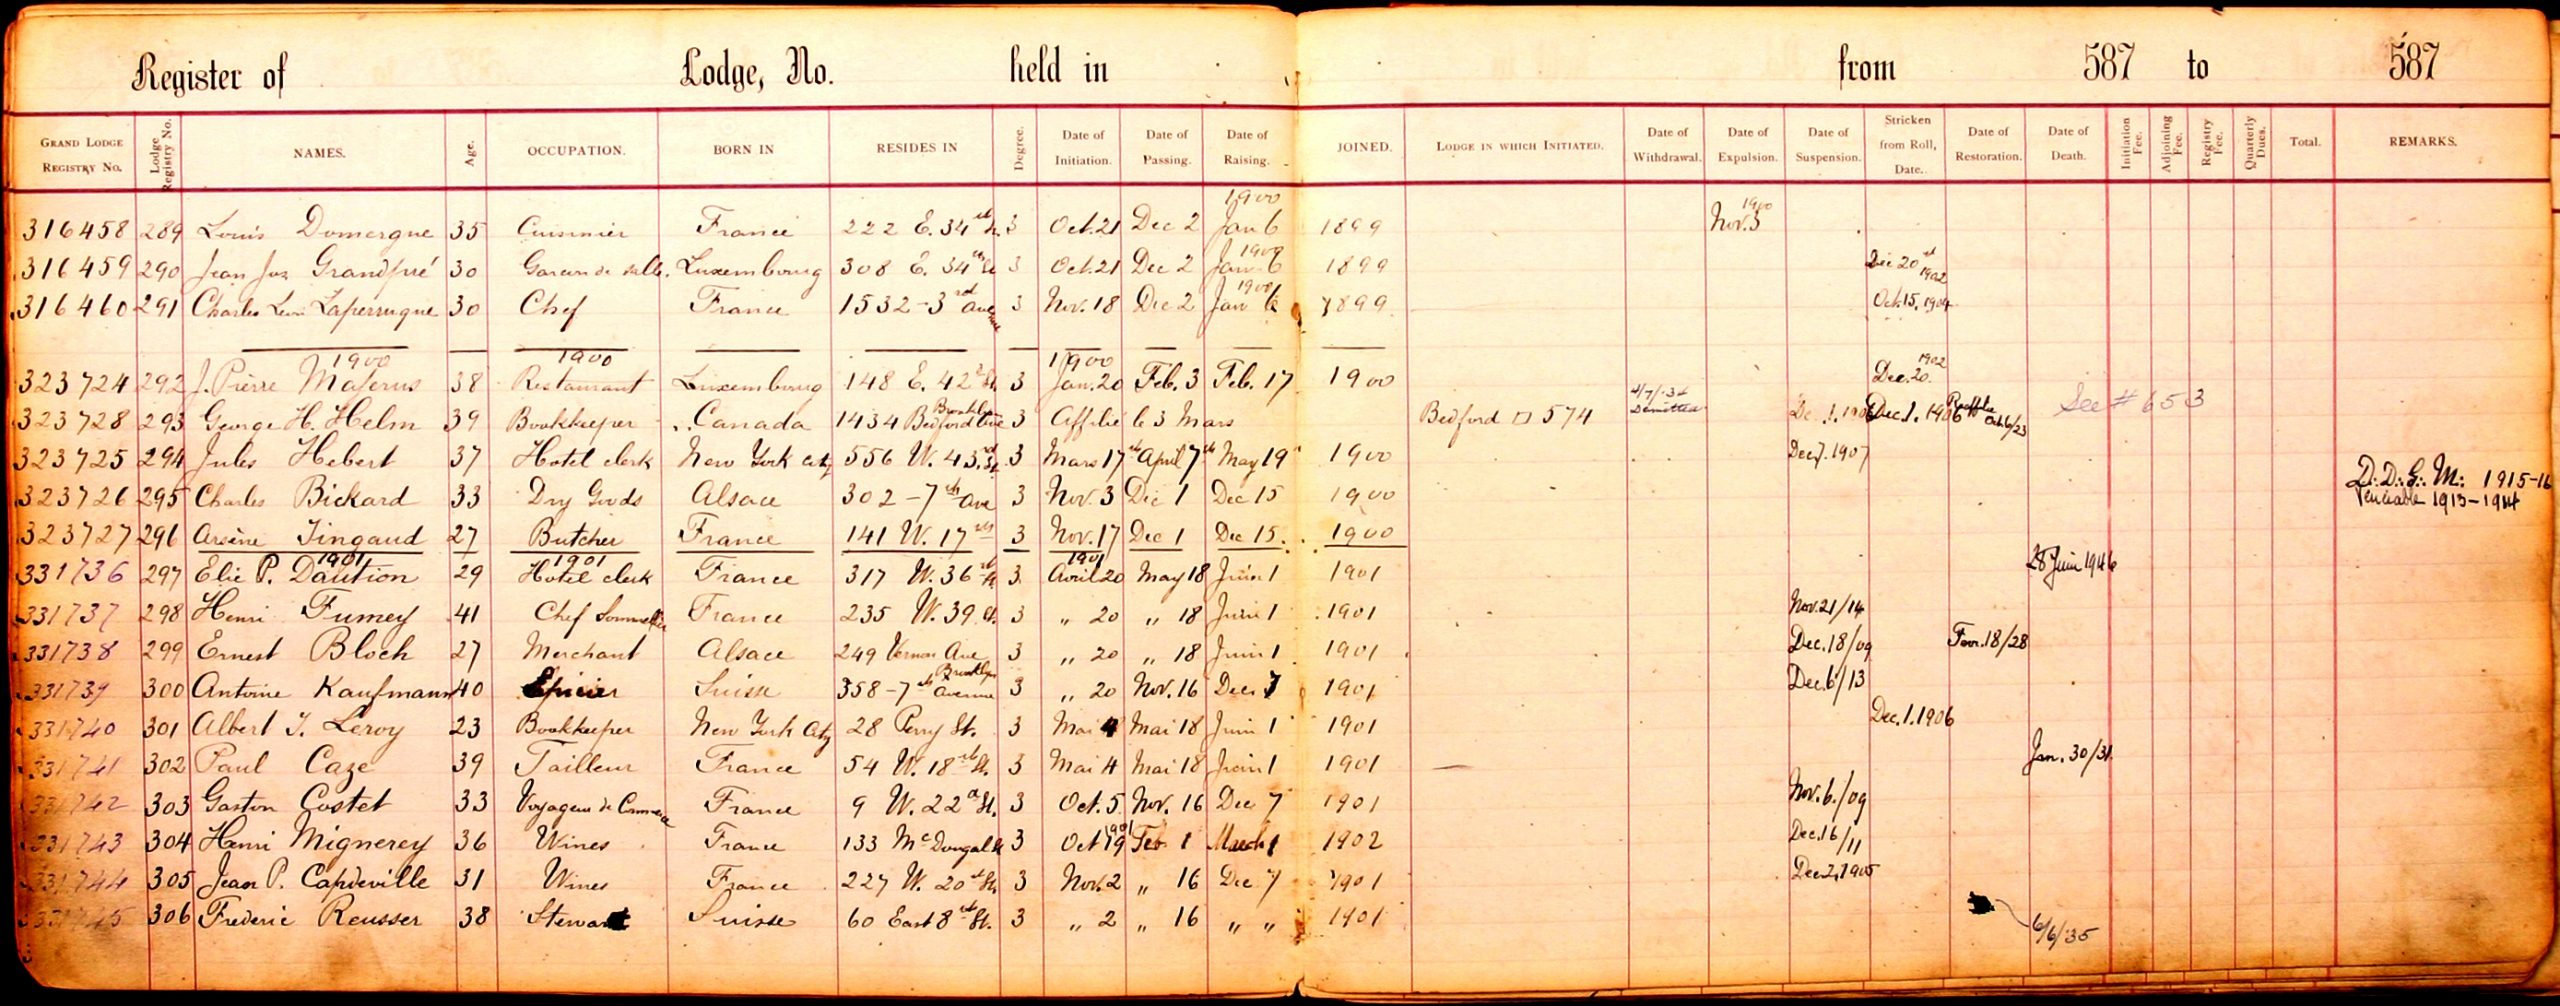 Register of Lodge, No. held in from 587 to 587
GRAND LODGE REGISTRY No. Lodge Registry No. NAMES. Age. OCCUPATION. BORN IN RESIDES IN Degree. Date of Initiation. Date of Passing. Date of Raising. JOINED. LODGE IN WHICH INITIATED. Date of Withdrawal. Date of Expulsion. Date of Suspension. Stricken from Roll, Date. Date of Restoration. Date of Death. Initiation Fee. Adjoining Fee. Registry Fee. Quarterly Dues. Total. REMARKS.
316458 289 Louis Domergue 35 Cuisinier France 222 E. 34 st. 3 Oct. 21 Dec 2 1900 Jan 6 1899 1900 Nov. 3
316459 290 Jean Jos Grandpré 30 Garcon de salle. Luxembourg 308 E. 34 St 3 Oct. 21 Dec 2 1900 Jan 6 1899 Dec 20 1902
316460 291 Charles Leon Laperrugue 30 Chef France 1532 - 3rd ave 3 Nov. 18 Dec 2 1900 Jan 6 1899 Oct. 15. 1904
1900 1900 1900
323724 292 J. Pierre Majerus 38 Restaurant Luxembourg 148 E. 42d St. 3 Jan. 20 Feb. 3 Feb. 17 1900 1902 Dec. 20.
323728 293 George H. Helm 39 Bookkeeper Canada 1434 Bedford Ave Brooklyn 3 Affilié le 3 Mars Bedford □ 574 Demitted Dec. 1. 1906 Dec. 1. 1906 Oct. 6/23 See # 653
323725 294 Jules Hebert 37 Hotel clerk New York City 556 W. 43rd St. 3 Mars 17 April 7 May 19 1900 Dec. 7. 1907
323726 295 Charles Bickard 33 Dry Goods Alsace 302 - 7th Ave 3 Nov. 3 Dec 1 Dec 15 1900 D∴D∴G∴M∴ 1915-16
Venerable 1913-1914
323727 296 Arsène Tingaud 27 Butcher France 141 W. 17th 3 Nov. 17 Dec 1 Dec 15. 1900
1901 1901 1901
331736 297 Elie P. Daution 29 Hotel clerk France 317 W. 36 st 3. Avril 20 May 18 Juin 1 1901 28 Juin 1946
331737 298 Henri Fumey 41 Chef Sommelier France 235 W. 39. St. 3 " 20 " 18 Juin 1 1901 Nov. 21/14
331738 299 Ernest Bloch 27 Merchant Alsace 249 Vernon Ave Brooklyn 3 " 20 " 18 Juin 1 1901 Dec. 18/09 Fevr. 18/28
331739 300 Antoine Kaufmann 40 Epicier Suisse 358 - 7th Avenue 3 " 20 Nov. 16 Dec. 7 1901 Dec. 6/13
331740 301 Albert J. Leroy 23 Bookkeeper New York City 28 Perry St. 3 Mai 4 Mai 18 Juin 1 1901 Dec. 1. 1906
331741 302 Paul Caze 39 Tailleur France 54 W. 18th St. 3 Mai 4 Mai 18 Juin 1 1901 Jan. 30/31
331742 303 Gaston Costet 33 Voyageur de Commerce France 9 W. 22d St. 3 Oct. 5 Nov. 16 Dec 7 1901 Nov. 6./09
331743 304 Henri Mignerey 36 Wines France 133 McDougal St 3 Oct 19 1901 Feb. 1 March 1 1902 Dec. 16/11
331744 305 Jean P. Capdeville 31 Wines France 227 W. 20th St. 3 Nov. 2 " 16 Dec 7 1901 Dec. 2, 1905
331745 306 Frederic Reusser 38 Steward Suisse 60 East 8th St. 3 " 2 " 16 " " 1901 6/6/35